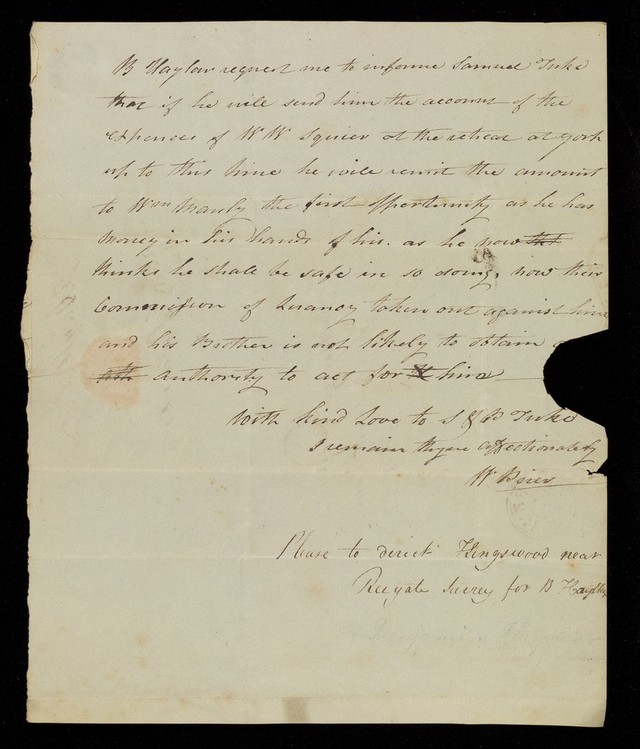 B Haylar request me to informe Samuel Tuke
that if he will send him the account of the
expences of W W Squier at the retreat at York
up to this time he will remit the amount
to Wm Manly the first oppertunity as he has
Money in his hands of his. as he now
thinks he shall be safe in so doing, now their
Commission of Lunancy taken out against him
and his Brother is not likely to obtain
authority to act for him
With kind Love to S & P Tuke
I remain thyne affectionately
W
Please to derect Kingswood near
Reigate Surrey for B Haylar